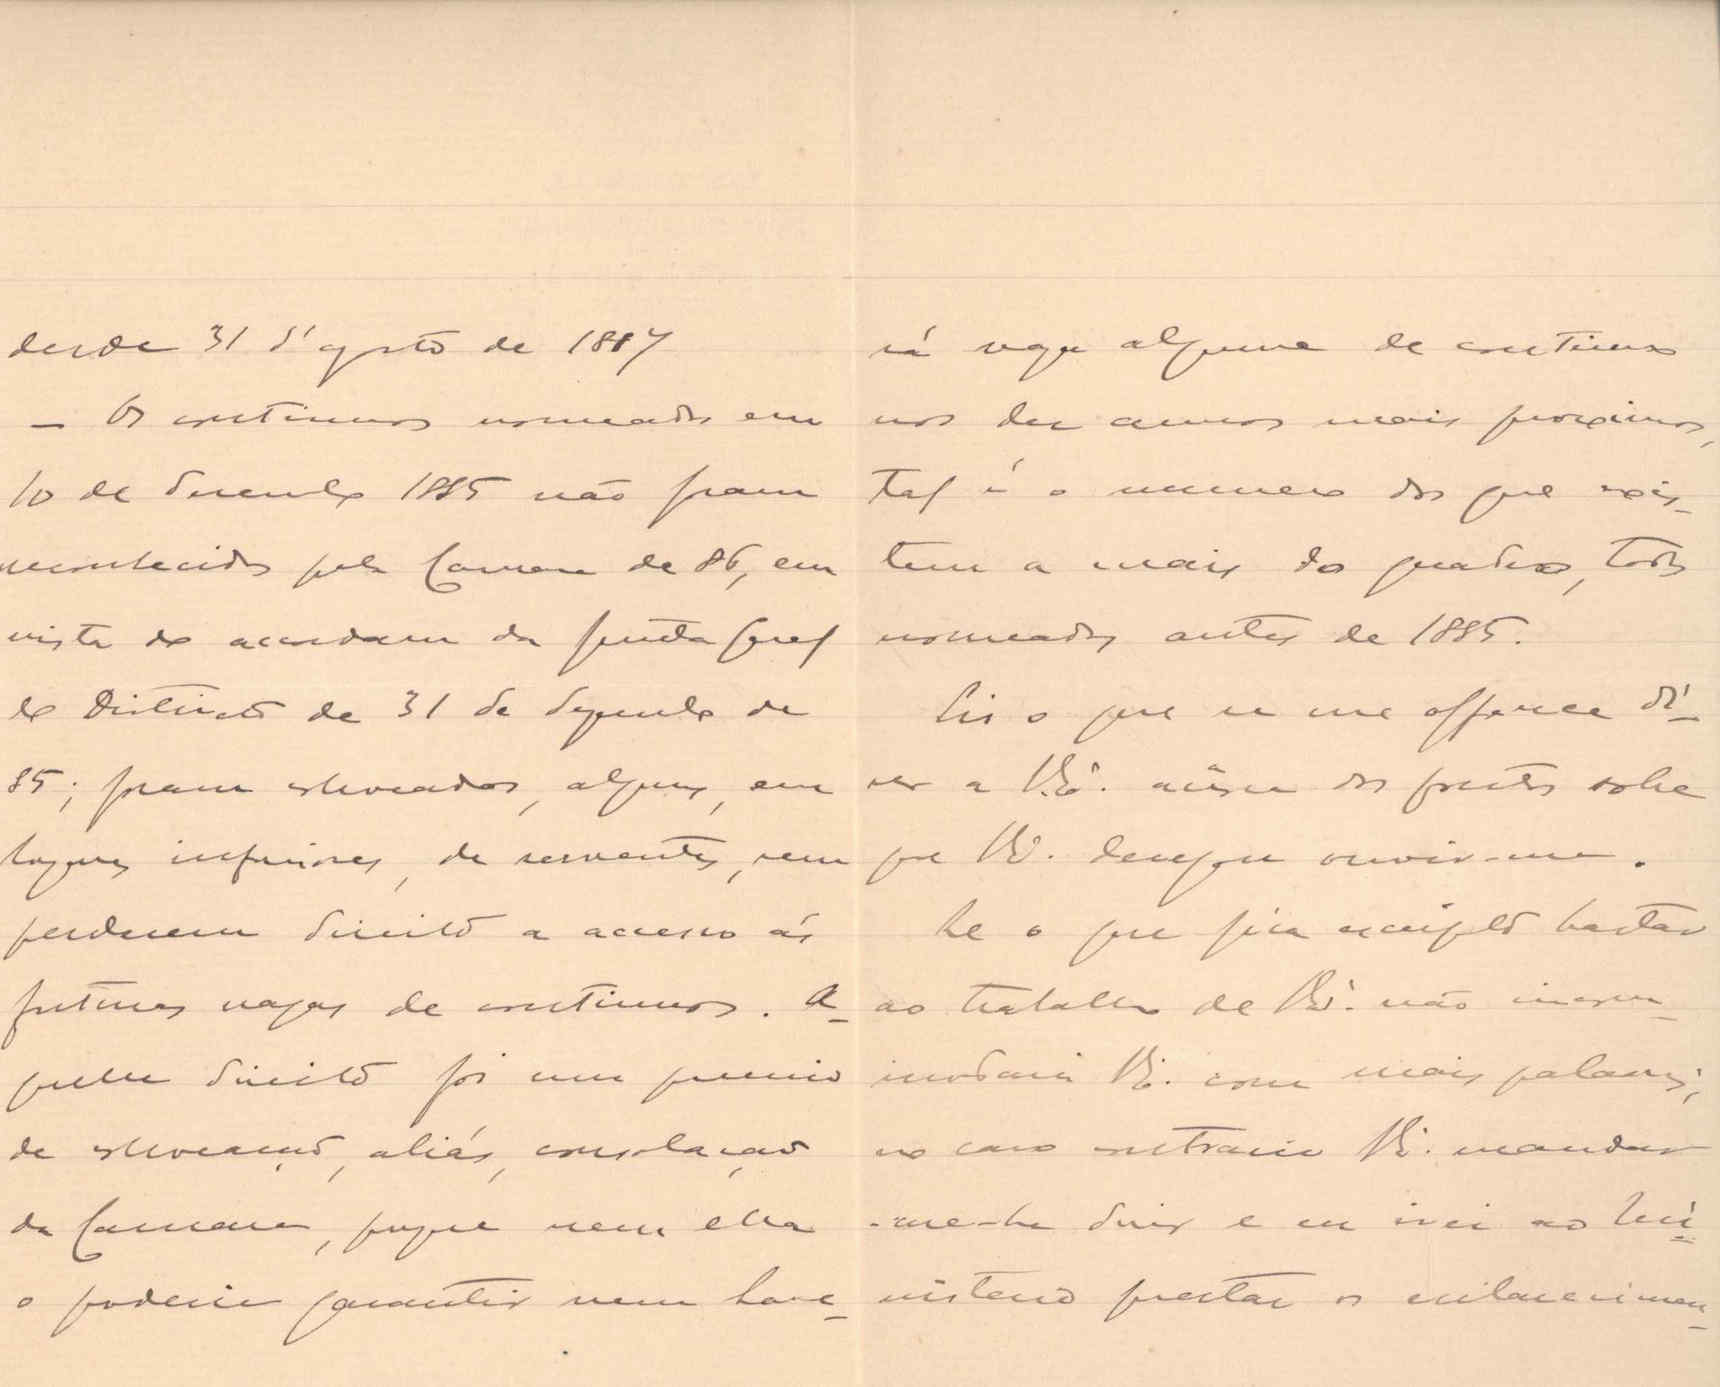 desde 31 d'agosto de 1887
— Os continuos nomeados em
10 de dezembro 1885 não foram
reconhecidos pela Camara de 86, em
vista do accordam da Junta Geral
do Districto de 31 de dezembro de
85; foram collocados, alguns, em
logares inferiores, de serventes, sem
perderem direito a accesso ás
futuras vagas de continuos. A-
quelle direito foi um premio
de collocação, aliás, consolação
da Camara, porque nem ella
o poderia garantir nem have-
rá vaga alguma de continuos
nos dez annos mais proximos,
tal é o numero dos que exis-
tem a mais do quadro, todos
nomeados antes de 1885.
Eis o que se me offerece di-
zer a V. Ex.ª ácerca dos pontos sobre
que V. Ex.ª desejou ouvir-me.
Se o que fica escripto bastar
ao trabalho de V. Ex.ª não incom-
modarei V. Ex.ª com mais palavras;
no caso contrario V. Ex.ª mandar
-me-ha dizer e eu irei ao Mi-
nisterio prestar os esclarecimen-